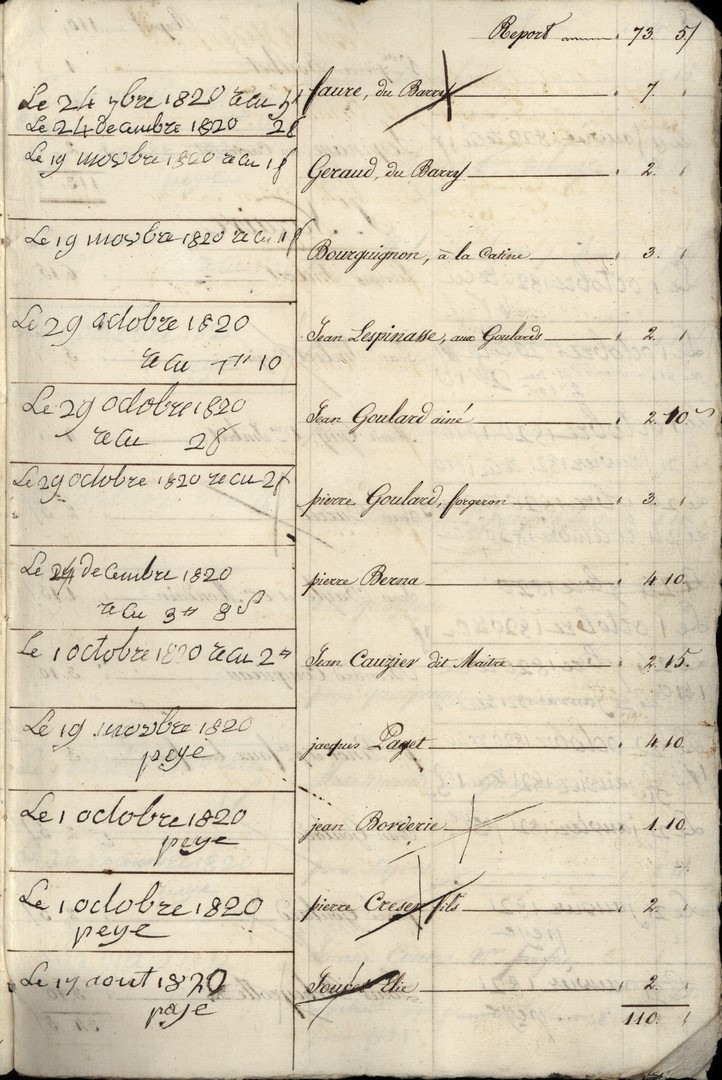 Report 73. 5/
Le 24 9bre 1820 recu 5f
Le 24 decembre 1820 2f
faure, du Barry 7.
Le 19 novbre 1820 recu 1f
Geraud, du Barry 2.
Le 19 novbre 1820 recu 1f
Bourguignon, à la Catine 3.
Le 29 octobre 1820
recu 10
Jean Lespinasse, aux Goulards 2.
Le 29 octobre 1820
recu 2f
Jean Goulard ainé 2. 10.
Le 29 octobre 1820 recu 2f
pierre Goulard, forgeron 3.
Le 24 decembre 1820
recu 3tt 8s
pierre Berna 4. 10.
Le 1 octobre 1820 recu 2tt
Jean Cauzier dit Maitre 2. 15.
Le 19 novbre 1820
peye
jacques Paget 4. 10.
Le 1 octobre 1820
peye
jean Borderie 1. 10.
Le 1 octobre 1820
peye
pierre fils 2.
Le 17 aout 1820
paye
Elie 2.
110.